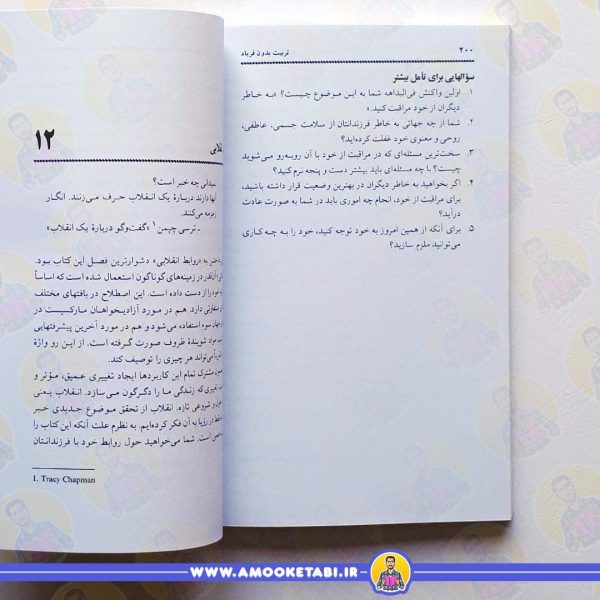 ۲۰۰
تربیت بدون فریاد
سؤالهایی برای تأمل بیشتر
۱. اولین واکنش فی‌البداهه شما به این موضوع چیست؟ «به خاطر
دیگران از خود مراقبت کنید.»
۲. شما از چه جهاتی به خاطر فرزندانتان از سلامت جسمی، عاطفی،
روحی و معنوی خود غفلت کرده‌اید؟
۳. سخت‌ترین مسئله‌ای که در مراقبت از خود با آن روبه‌رو می‌شوید
چیست؟ با چه مسئله‌ای باید بیشتر دست و پنجه نرم کنید؟
۴. اگر بخواهید به خاطر دیگران در بهترین وضعیت قرار داشته باشید،
برای مراقبت از خود، انجام چه اموری باید در شما به صورت عادت
درآید؟
۵. برای آنکه از همین امروز به خود توجه کنید، خود را به چه کاری
می‌توانید ملزم سازید؟
۱۲
میدانی چه خبر است؟
آنها دارند دربارهٔ یک انقلاب حرف می‌زنند. انگار
زمزمه می‌کنند.
ـ ترسی چپمن۱ «گفت‌وگو دربارهٔ یک انقلاب»
به «روابط انقلابی» دشوارترین فصل این کتاب بود.
آن‌قدر در زمینه‌های گوناگون استعمال شده است که اساساً
خود را از دست داده است. این اصطلاح در بافتهای مختلف
متفاوتی دارد. هم در مورد آزادیخواهان مارکسیست در
جهان سوم استفاده می‌شود و هم در مورد آخرین پیشرفتهایی
مواد شویندهٔ ظروف صورت گرفته است. از این رو واژهٔ
می‌تواند هر چیزی را توصیف کند.
مشترک تمام این کاربردها ایجاد تغییری عمیق، مؤثر و
تغییری که زندگی ما را دگرگون می سازد. انقلاب یعنی
و شروعی تازه. انقلاب از تحقق موضوع جدیدی خبر
فقط در رؤیا به آن فکر کرده‌ایم. به نظرم علت آنکه این کتاب را
است. شما می‌خواهید حول روابط خود با فرزندانتان
1. Tracy Chapman
WWW.AMOOKETABI.IR